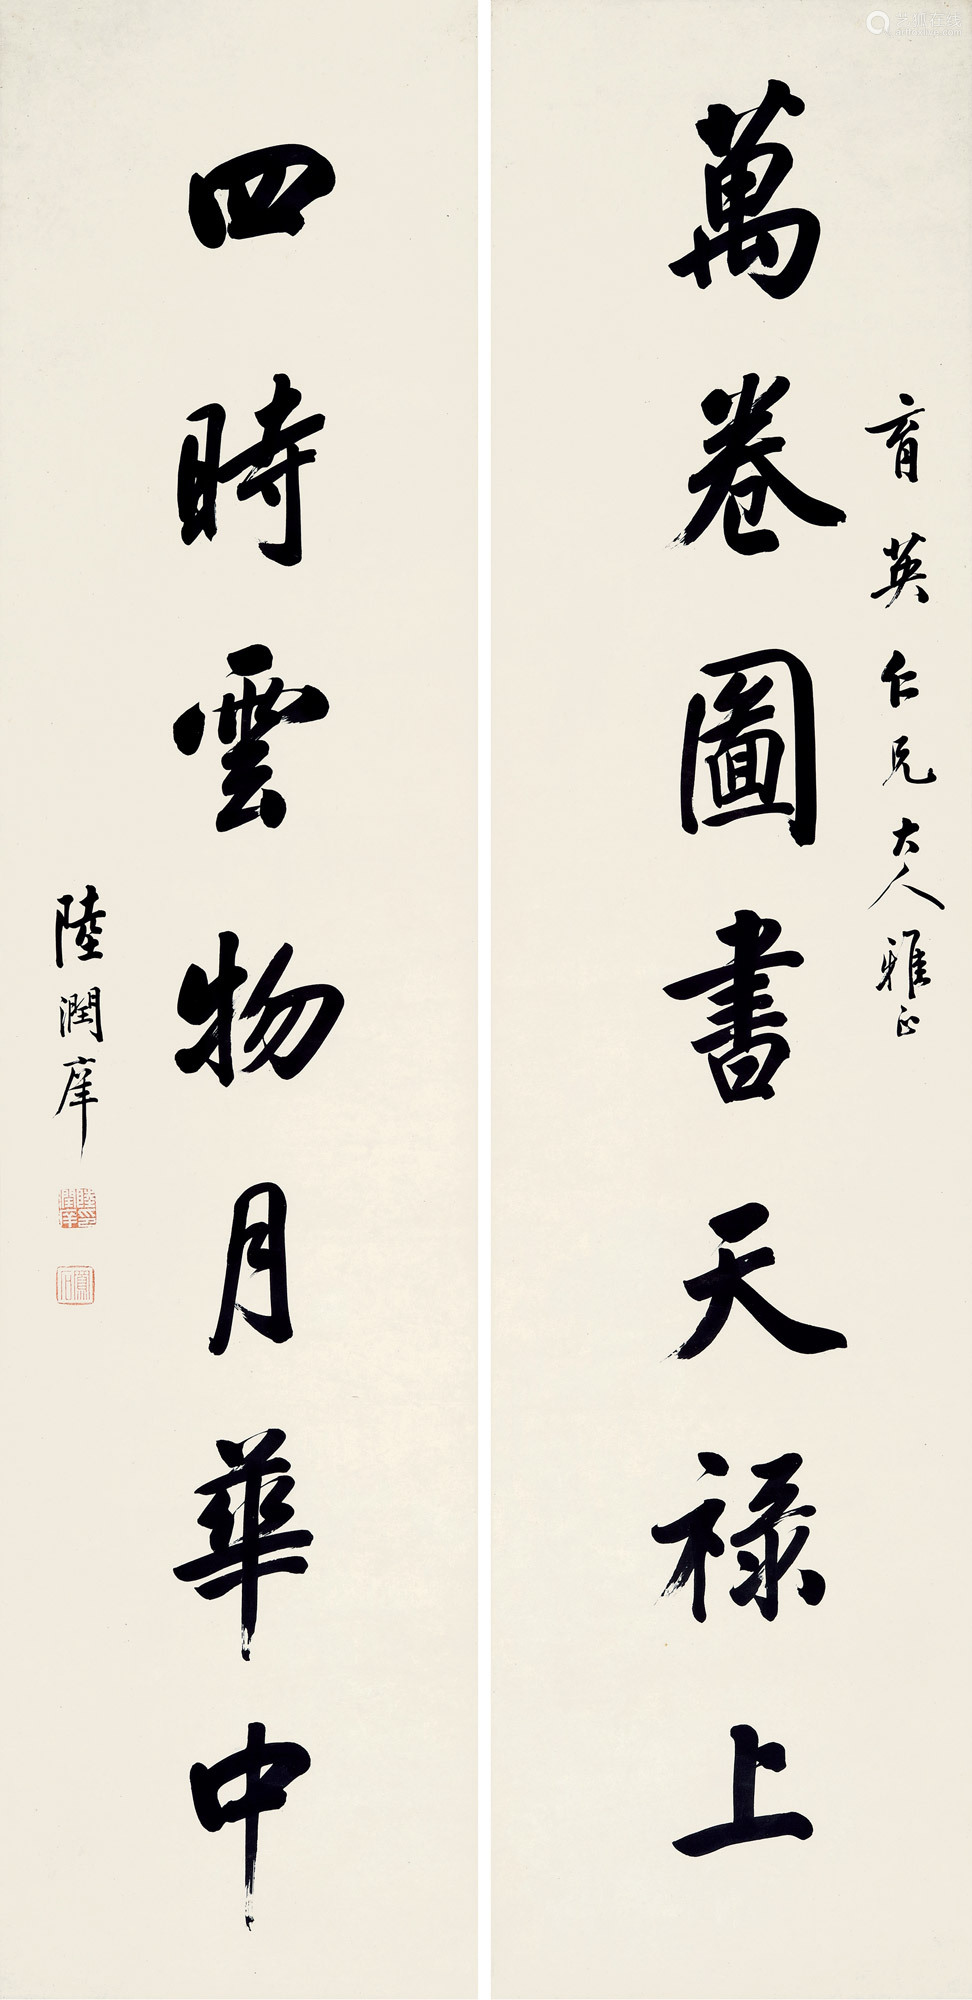 育英仁兄大人雅正
萬卷圖書天祿上
四時雲物月華中
陸潤庠
陸潤庠印
鳳石